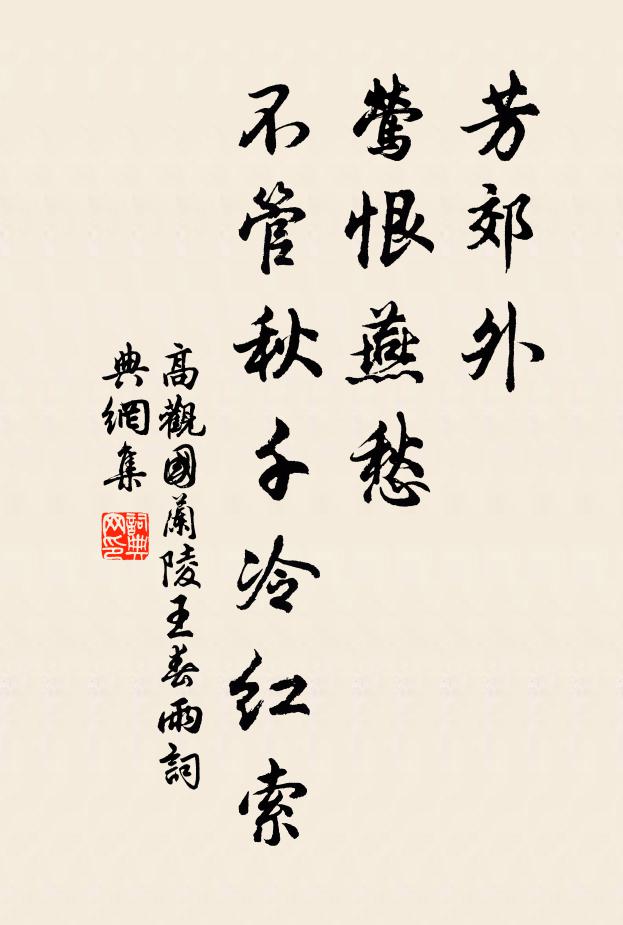 芳郊外
莺恨燕愁
不管秋千冷红索
高觀國蘭陵王春雨詞
典網集
詞典网印